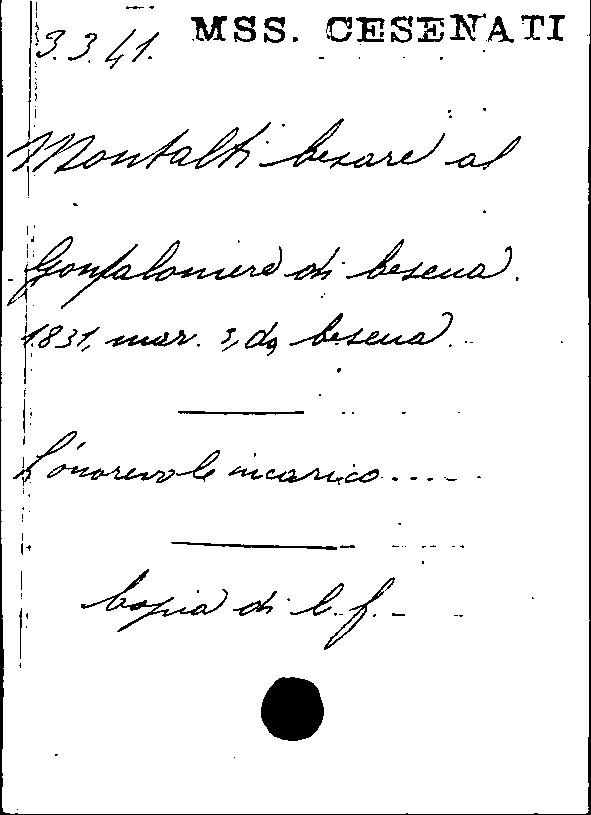 3.3.41. MSS. CESENATI
Montalti Cesare al
Gonfaloniere di Cesena.
1831, mar. 3, da Cesena.
L'onorevole incarico.....
Copia di C. f.